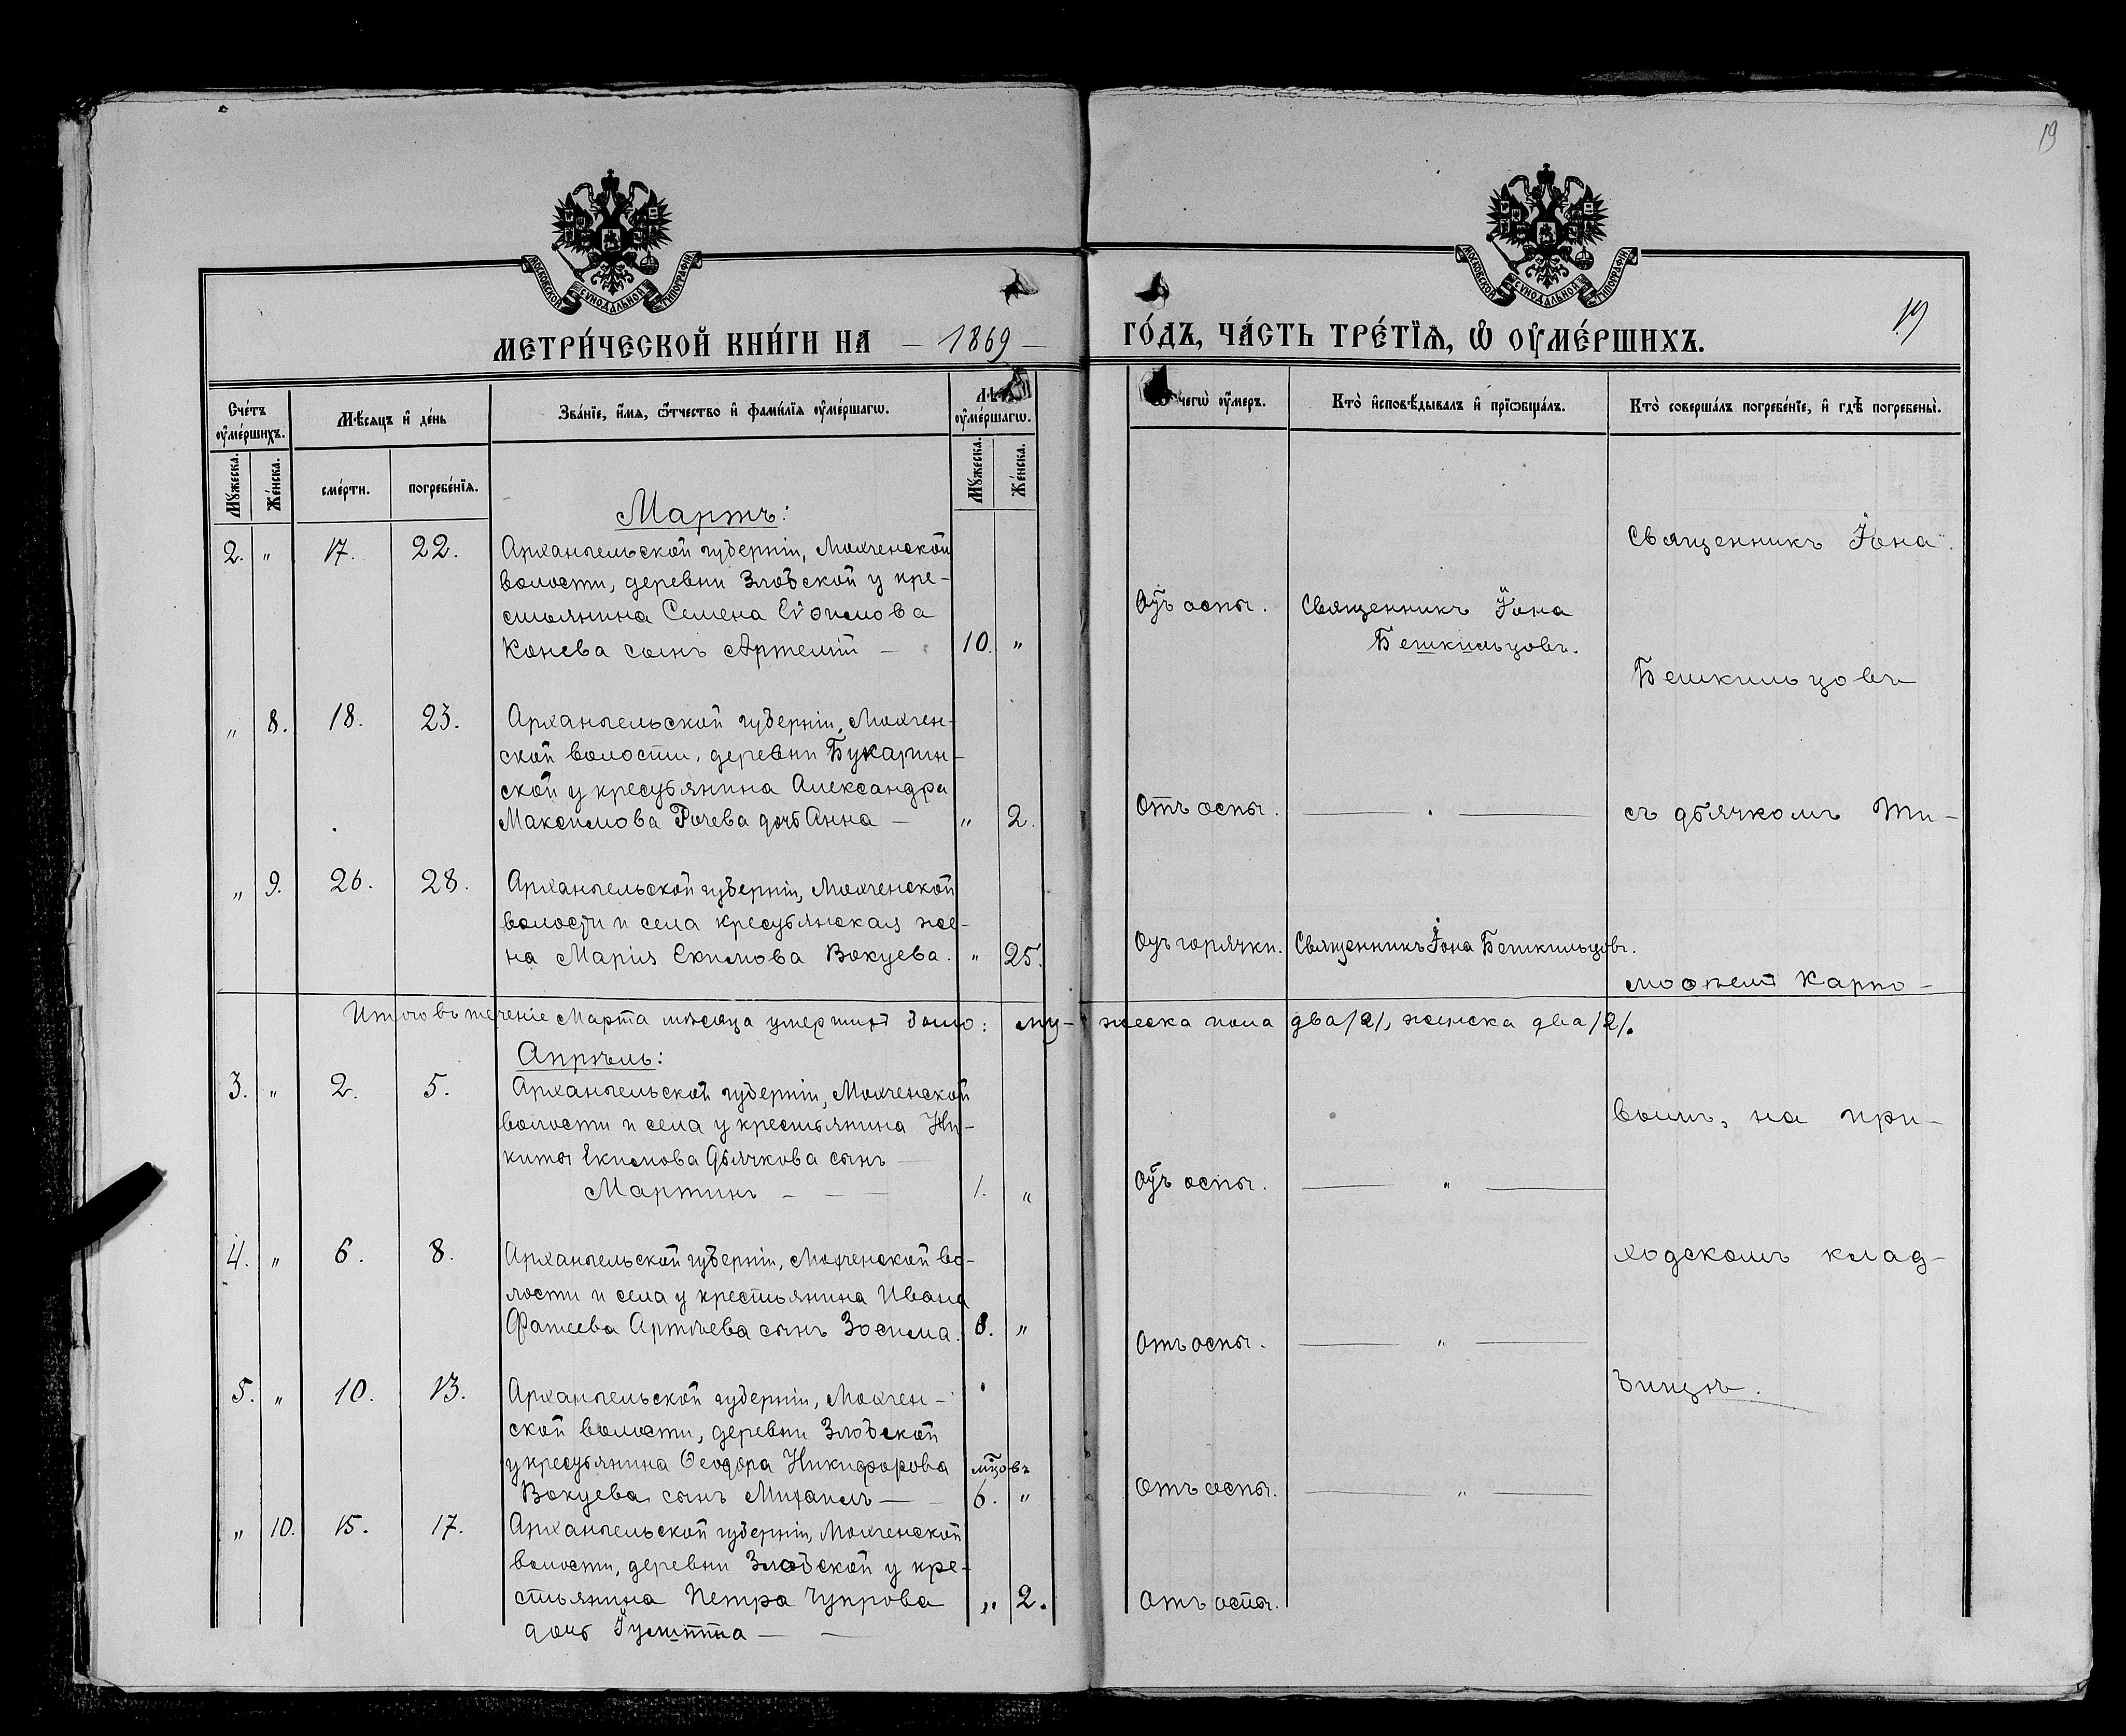 19
МОСКОВСКОЙ СѴНОДАЛЬНОЙ ТИПОГРАФІИ
МОСКОВСКОЙ СѴНОДАЛЬНОЙ ТИПОГРАФІИ
МЕТРИ́ЧЕСКОЙ КНИ́ГИ НА — 1869 —
ГО́ДЪ, ЧА́СТЬ ТРЕ́ТЇѦ, Ѡ҆ ОУ҆МЕ́РШИХЪ.
19
Сче́тъ оу҆ме́ршихъ.
Мѣ́сяцъ и҆ де́нь
Зва́нїе, и҆́мя, ѿтчество и҆ фами́лїя оу҆ме́ршагѡ.
Лѣ́та оу҆ме́ршагѡ.
Ѿ чегѡ̀ оу҆́меръ.
Кто̀ и҆сповѣ́дывалъ и҆ прїѡбща́лъ.
Кто̀ соверша́лъ погребе́нїе, и҆ гдѣ̀ погребены̀.
Мꙋ́жеска.
Же́нска.
сме́рти.
погребе́нїя.
Мꙋ́жеска.
Же́нска.
Мартъ:
2. " 17. 22. Архангельской губерніи, Мохченской
волости, деревни Злобской у кре-
стьянина Семена Евѳимова
Конева сынъ Артемій — 10. "
Отъ оспы. Священникъ Іона
Бешкильцовъ.
Священникъ Іона
Бешкильцовъ
" 8. 18. 23. Архангельской губерніи, Мохчен-
ской волости, деревни Букарин-
ской у крестьянина Александра
Максимова Рочева дочь Анна — " 2.
Отъ оспы. — " —
съ дьячкомъ Ти-
" 9. 26. 28. Архангельской губерніи, Мохченской
волости и села крестьянская же-
на Марія Екимова Вокуева. " 25.
Отъ горячки. Священникъ Іона Бешкильцовъ.
моѳеемъ Карпо-
Итого въ теченіе Марта мѣсяца умершихъ было: му- жеска пола два /2/, женска два /2/.
Апрѣль:
3. " 2. 5. Архангельской губерніи, Мохченской
волости и села у крестьянина Ни-
киты Екимова Дьячкова сынъ —
Мартинъ — — — 1. "
Отъ оспы. — " —
вымъ, на при-
4. " 6. 8. Архангельской губерніи, Мохченской во-
лости и села у крестьянина Ивана
Фатеева Артѣева сынъ Зосима. 8. "
Отъ оспы. — " —
ходскомъ клад-
5. " 10. 13. Архангельской губерніи, Мохчен-
ской волости, деревни Злобской
у крестьянина Ѳеодора Никифорова
Вокуева сынъ Михаилъ — мцовъ 6. "
Отъ оспы. — " —
бищѣ.
" 10. 15. 17. Архангельской губерніи, Мохченской
волости, деревни Злобской у кре-
стьянина Петра Чупрова " 2.
дочь
Отъ оспы.